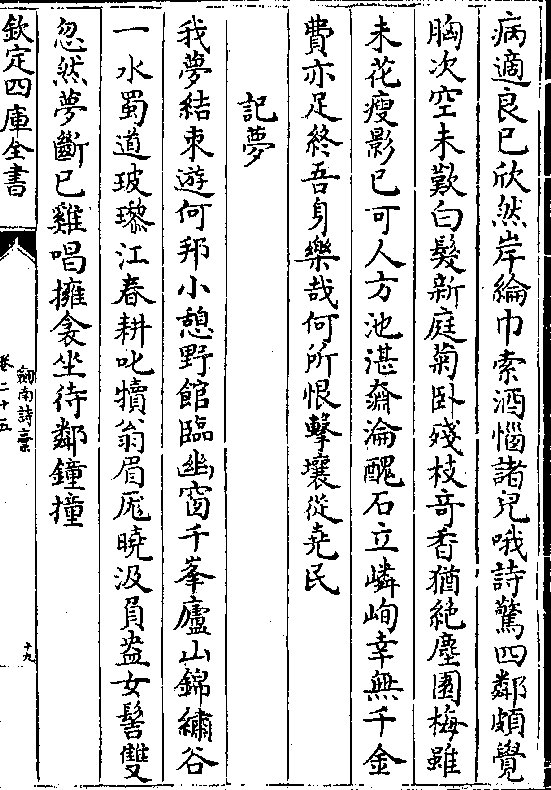 病適良已欣然岸綸巾索酒惱諸兒哦詩驚四鄰頗覺
胸次空未歎白髮新庭菊卧殘枝奇香猶絶塵園梅雖
未花瘦影已可人方池湛奫淪醜石立嶙峋幸無千金
費亦足終吾身樂哉何所恨擊壤從堯民
記夢
我夢結束遊何邦小憩野館臨幽窗千峯廬山錦繡谷
一水蜀道玻瓈江春耕叱犢翁眉厖曉汲負盎女髻雙
忽然夢斷已雞唱擁衾坐待鄰鐘撞
欽定四庫全書
劒南詩藁
卷二十五
十九